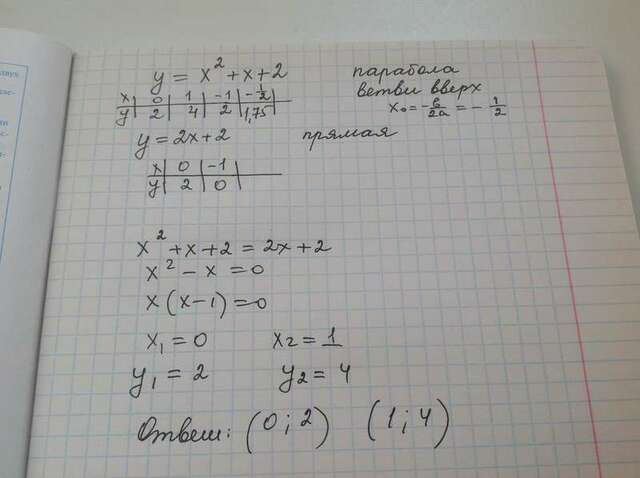 y = x² + x + 2 парабола
ветви вверх
x | 0 | 1 | -1 | -1/2
y | 2 | 4 | 2 | 1,75
x₀ = -в/2a = -1/2
y = 2x + 2 прямая
x | 0 | -1
y | 2 | 0
x² + x + 2 = 2x + 2
x² - x = 0
x(x-1) = 0
x₁ = 0 x₂ = 1
y₁ = 2 y₂ = 4
Ответ: (0; 2) (1; 4)